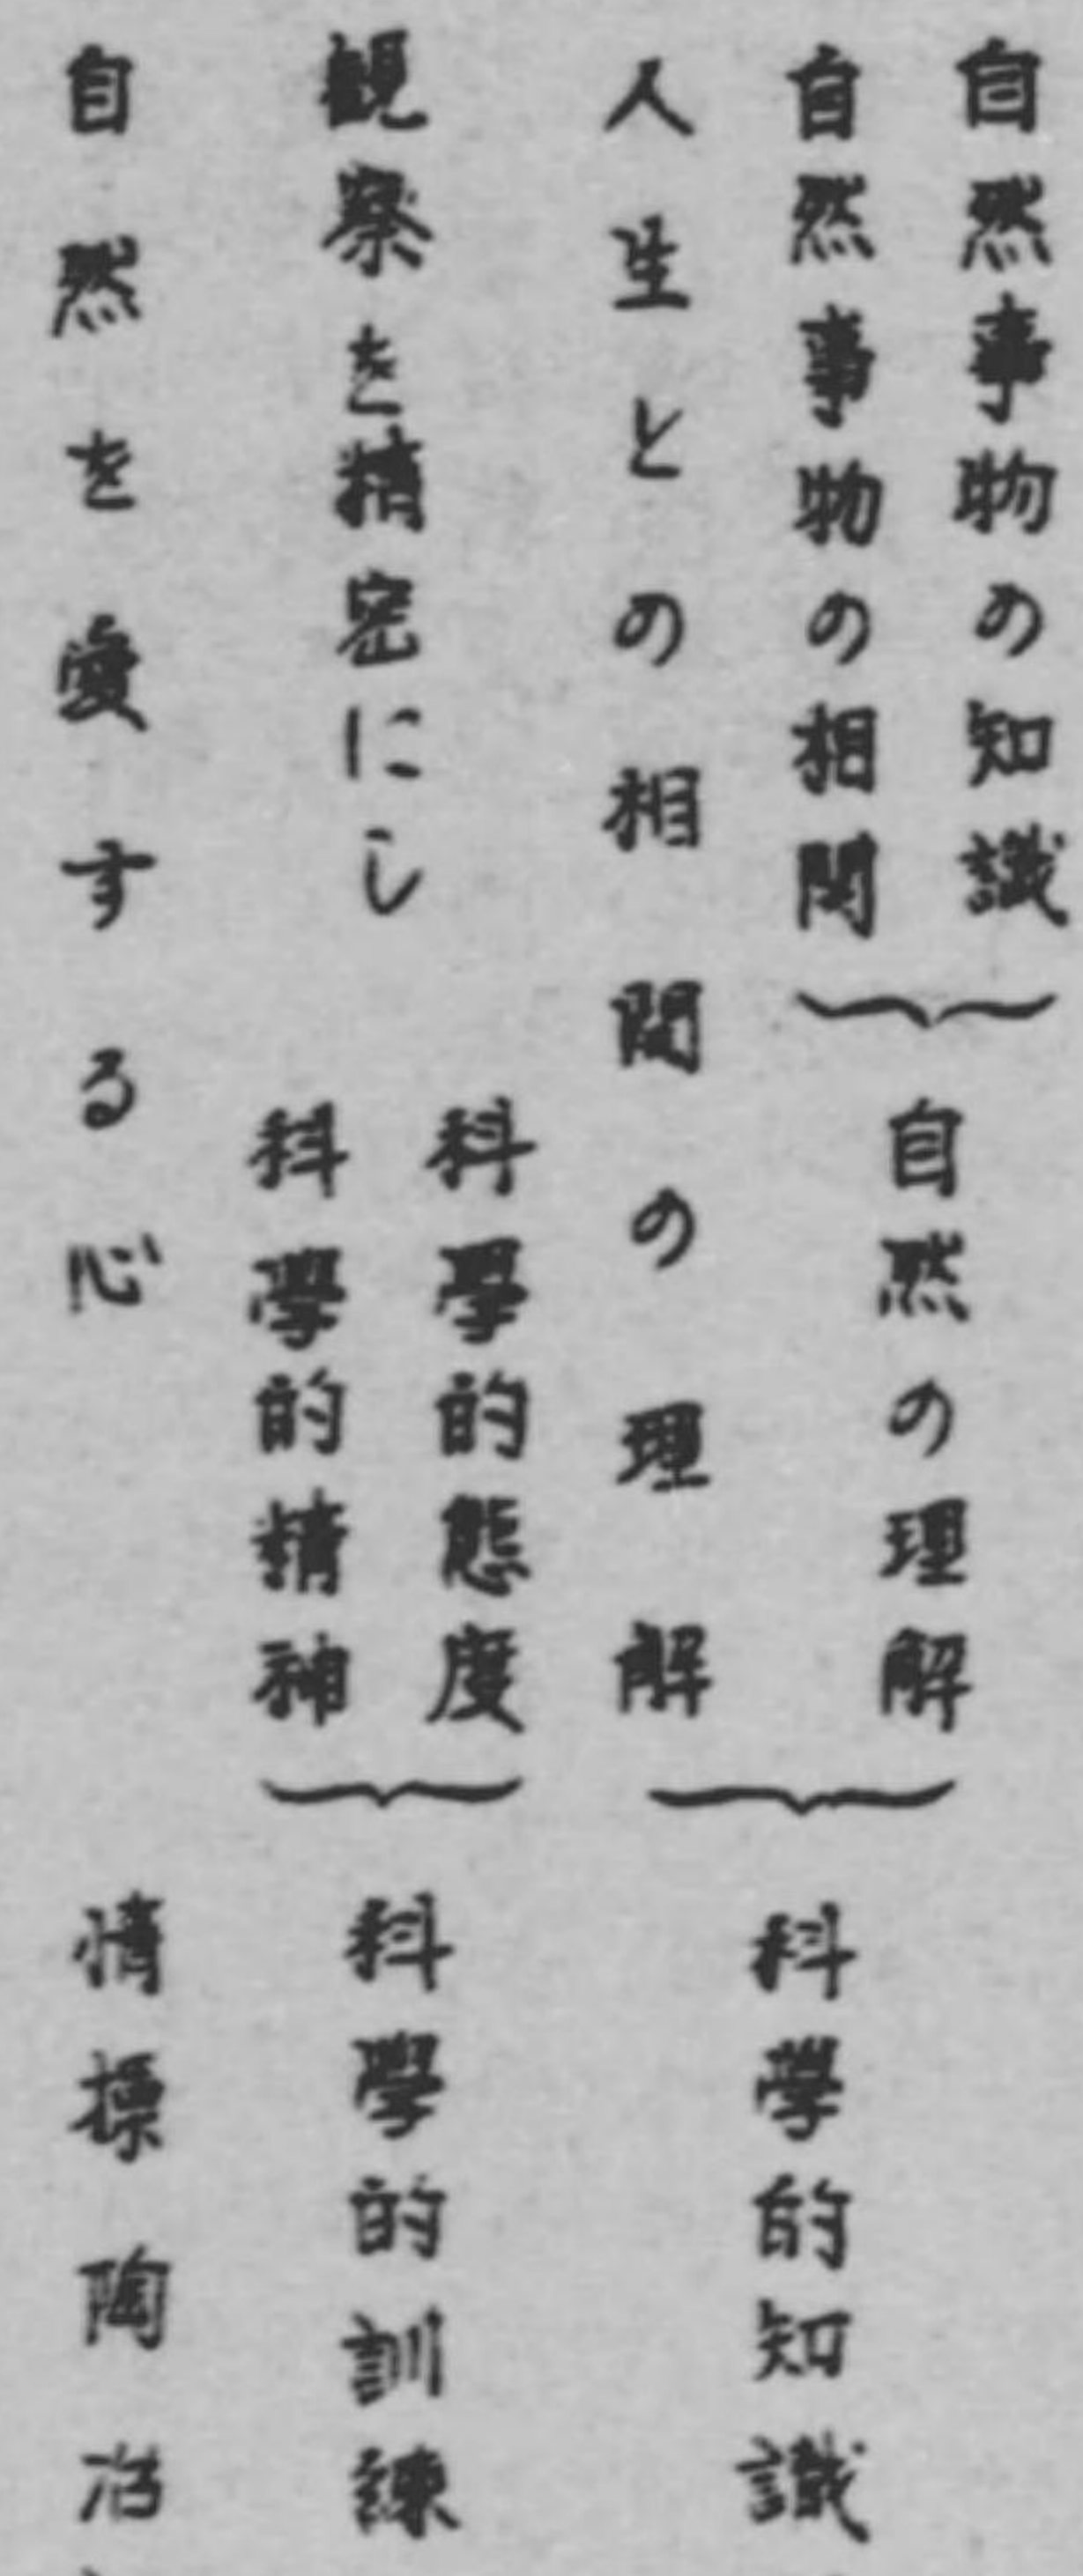 自然事物の知識
自然事物の相関
自然の理解
人生との相関の理解
科學的知識
観察を精密にし
科學的態度
科學的精神
科學的訓練
自然を愛する心
情操陶冶